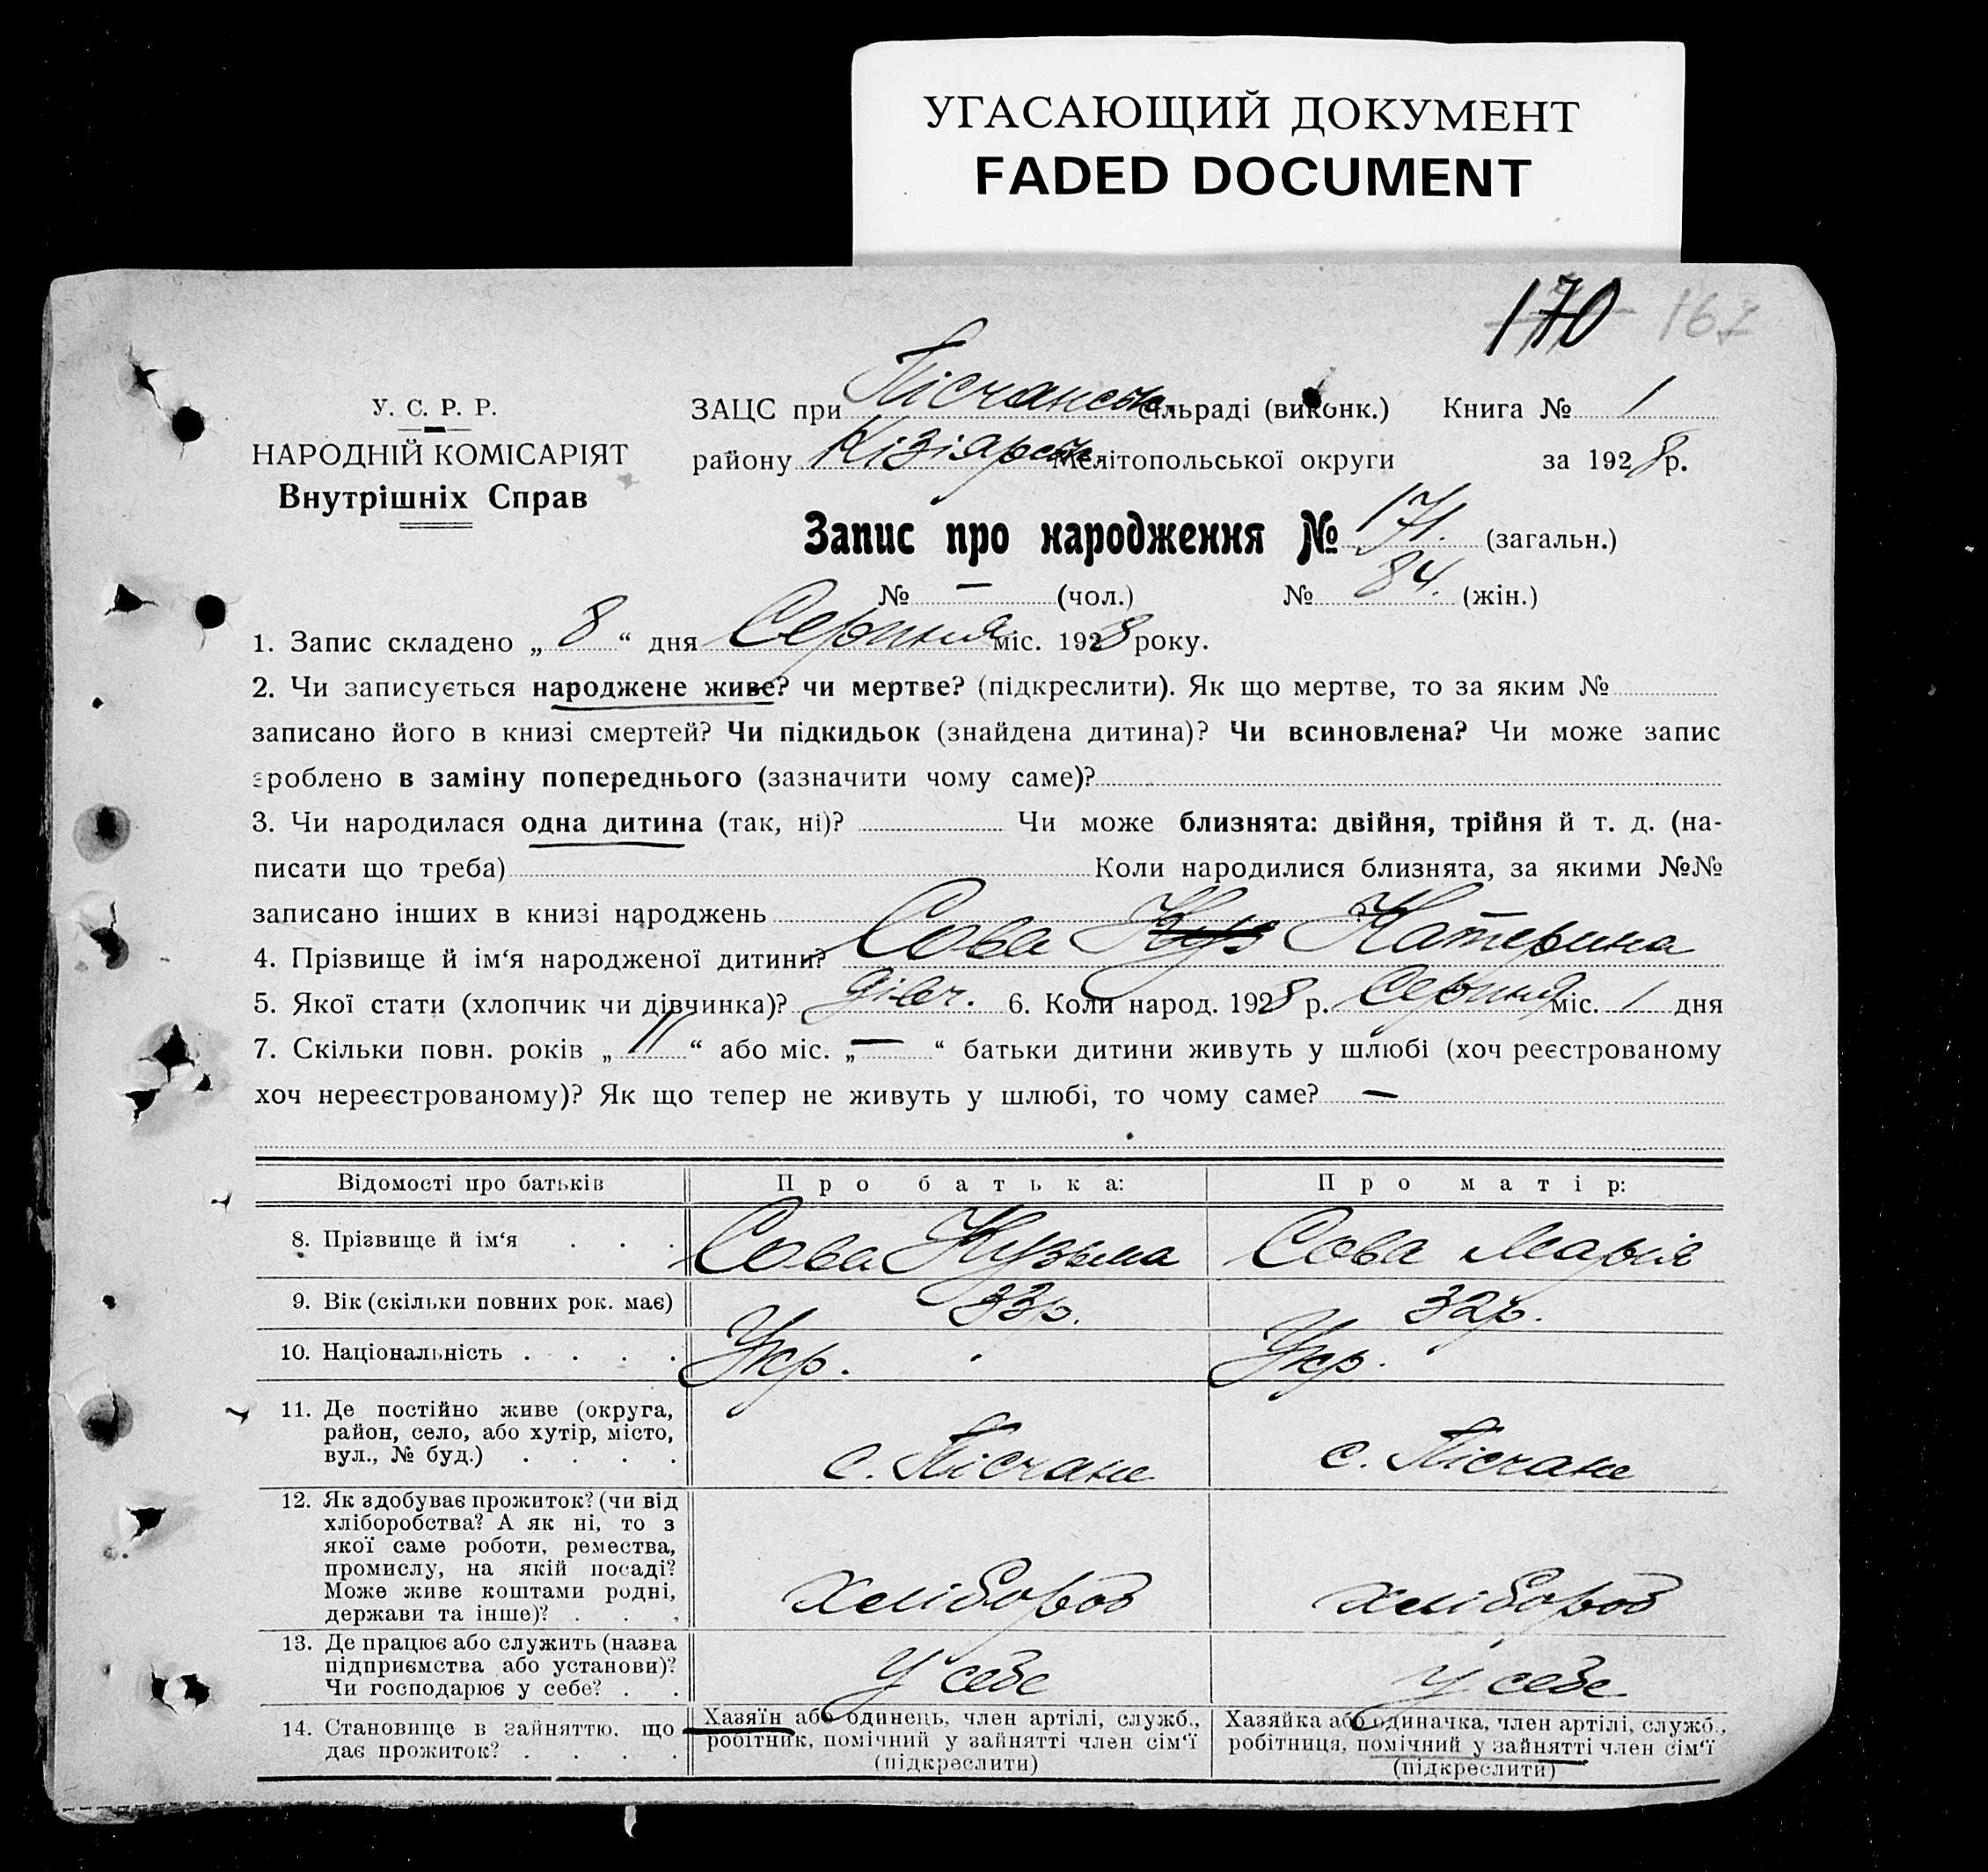 УГАСАЮЩИЙ ДОКУМЕНТ
FADED DOCUMENT
170 167
У. С. Р. Р.
НАРОДНІЙ КОМІСАРІЯТ
Внутрішніх Справ
ЗАЦС при Пісчанськ. сільраді (виконк.) Книга № 1
району Кізіярськ. Мелітопольської округи за 1928 р.
Запис про народження № 171. (загальн.)
№ — (чол.) № 84. (жін.)
1. Запис складено „ 8 “ дня Серпня міс. 1928 року.
2. Чи записується народжене живе? чи мертве? (підкреслити). Як що мертве, то за яким №
записано його в книзі смертей? Чи підкидьок (знайдена дитина)? Чи всиновлена? Чи може запис
зроблено в заміну попереднього (зазначити чому саме)?
3. Чи народилася одна дитина (так, ні)? Чи може близнята: двійня, трійня й т. д. (на-
писати що треба) Коли народилися близнята, за якими №№
записано інших в книзі народжень
4. Прізвище й ім‘я народженої дитини? Сова Куз Катерина
5. Якої стати (хлопчик чи дівчинка)? дівч. 6. Коли народ. 1928 р. Серпня міс. 1 дня
7. Скільки повн. років „ 11 “ або міс. „ — “ батьки дитини живуть у шлюбі (хоч реєстрованому
хоч нереєстрованому)? Як що тепер не живуть у шлюбі, то чому саме? —
Відомості про батьків Про батька: Про матір:
8. Прізвище й ім‘я . . . Сова Кузьма Сова Марія
9. Вік (скільки повних рок. має) 33р. 32р.
10. Національність . . . . Укр. Укр.
11. Де постійно живе (округа,
район, село, або хутір, місто,
вул., № буд.) . . . . с. Пісчане с. Пісчане
12. Як здобуває прожиток? (чи від
хліборобства? А як ні, то з
якої саме роботи, ремества,
промислу, на якій посаді?
Може живе коштами родні,
держави та інше)? . . . хлібороб хлібороб
13. Де працює або служить (назва
підприємства або установи)?
Чи господарює у себе? . . У себе У себе
14. Становище в зайняттю, що
дає прожиток? . . . .
Хазяїн або одинець, член артілі, служб.,
робітник, помічний у зайнятті член сім‘ї
(підкреслити)
Хазяйка або одиначка, член артілі, служб.,
робітниця, помічний у зайнятті член сім‘ї
(підкреслити)